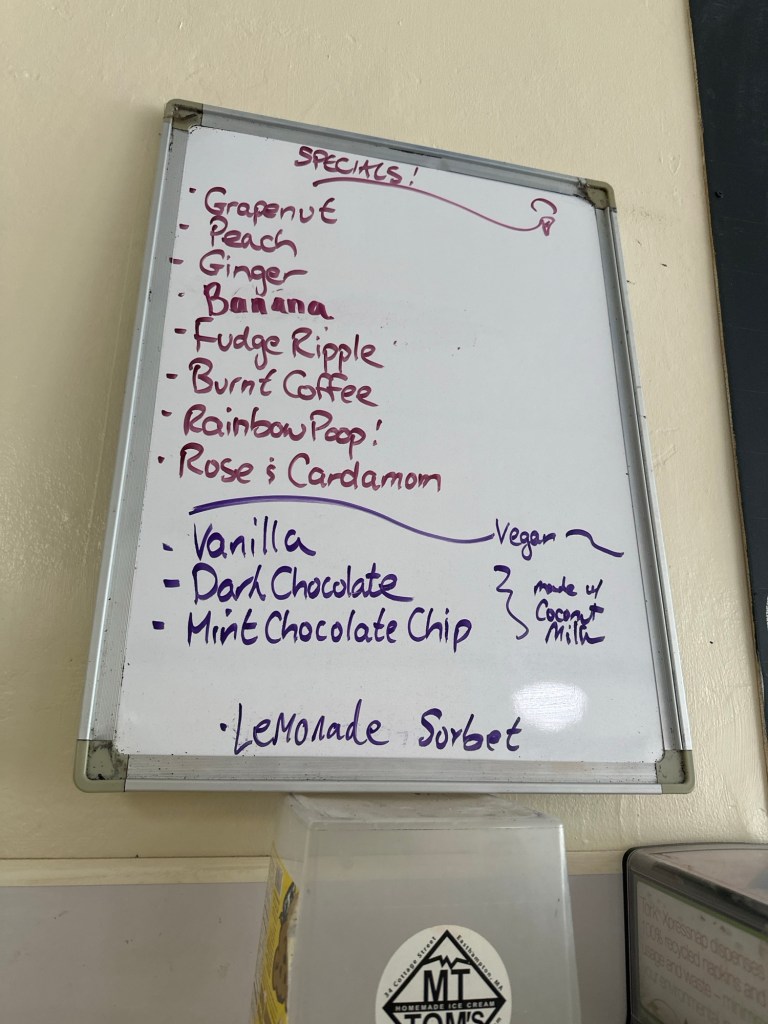 SPECIALS!
- Grapenut
- Peach
- Ginger
- Banana
- Fudge Ripple
- Burnt Coffee
- Rainbow Poop!
- Rose & Cardamom
Vegan
- Vanilla
- Dark Chocolate
- Mint Chocolate Chip
made w/
Coconut
Milk
· LeMonade Sorbet
34 Cottage Street Easthampton, MA
MT
HOMEMADE ICE CREAM
TOM'S
Xpressnap dispensers
100% recycled napkins and